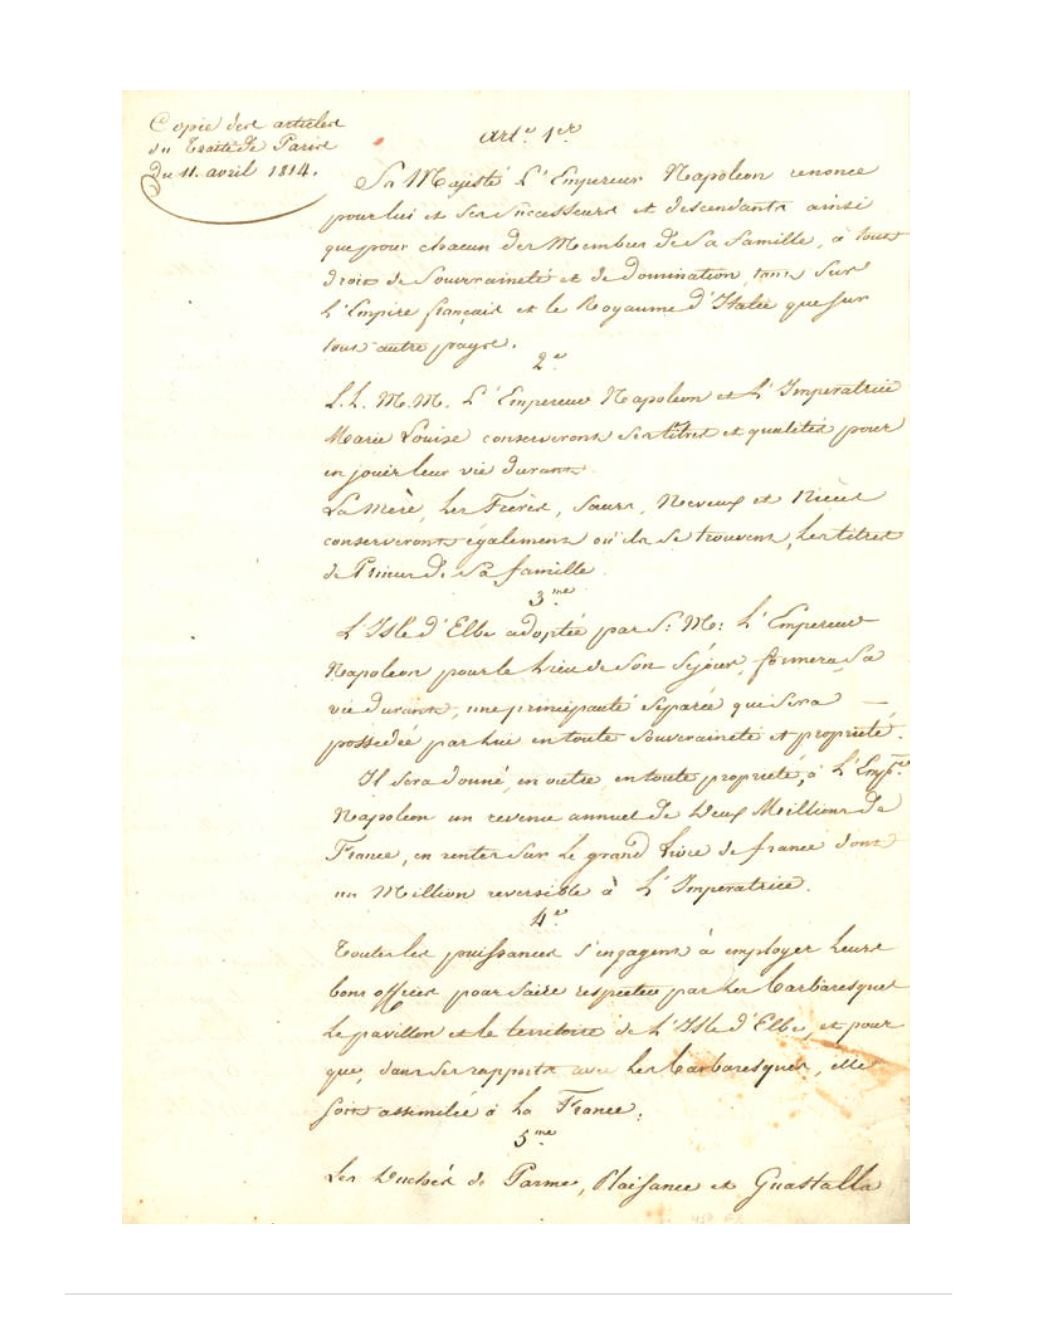 Copie des articles
du Traité de Paris
du 11. avril 1814.
Art.e 1.er
Sa Majesté L'Empereur Napoleon renonce
pour lui et ses Successeurs et descendants ainsi
que pour chacun des Membres de Sa famille, à tout
droit de Souveraineté et de domination tant Sur
L'Empire français et le Royaume d'Italie que Sur
tout autre pays.
2.e
L.L. M.M. L'Empereur Napoleon et L'Imperatrice
Marie Louise conserveront ses titres et qualités pour
en jouir leur vie durant
La Mère, Les Frères, Sœurs, Neveux et Nièces
conserveront également où ils se trouvent, Les titres
de Princes de Sa famille.
3.me
L'Isle d'Elbe adoptée par S: M: L'Empereur
Napoleon pour le Lieu de Son Séjour, formera, Sa
vie durant, une principauté Séparée qui Sera —
possedée par Lui en toute Souveraineté et propriété.
Il Sera donné, en outre, en toute propriété, à L'Emp.r
Napoleon un revenu annuel de Deux Millions de
France, en rentes Sur Le grand Livre de france dont
un Million reversible à L'Imperatrice.
4.e
Toutes les puissances s'engagent à employer Leurs
bons offices pour faire respecter par Les Barbaresques
Le pavillon et le territoire de L'Isle d'Elbe, et pour
que, dans Ses rapports avec Les Barbaresques, elle
soit assimilée à La France.
5.me
Les Duchés de Parme, Plaisance et Guastalla